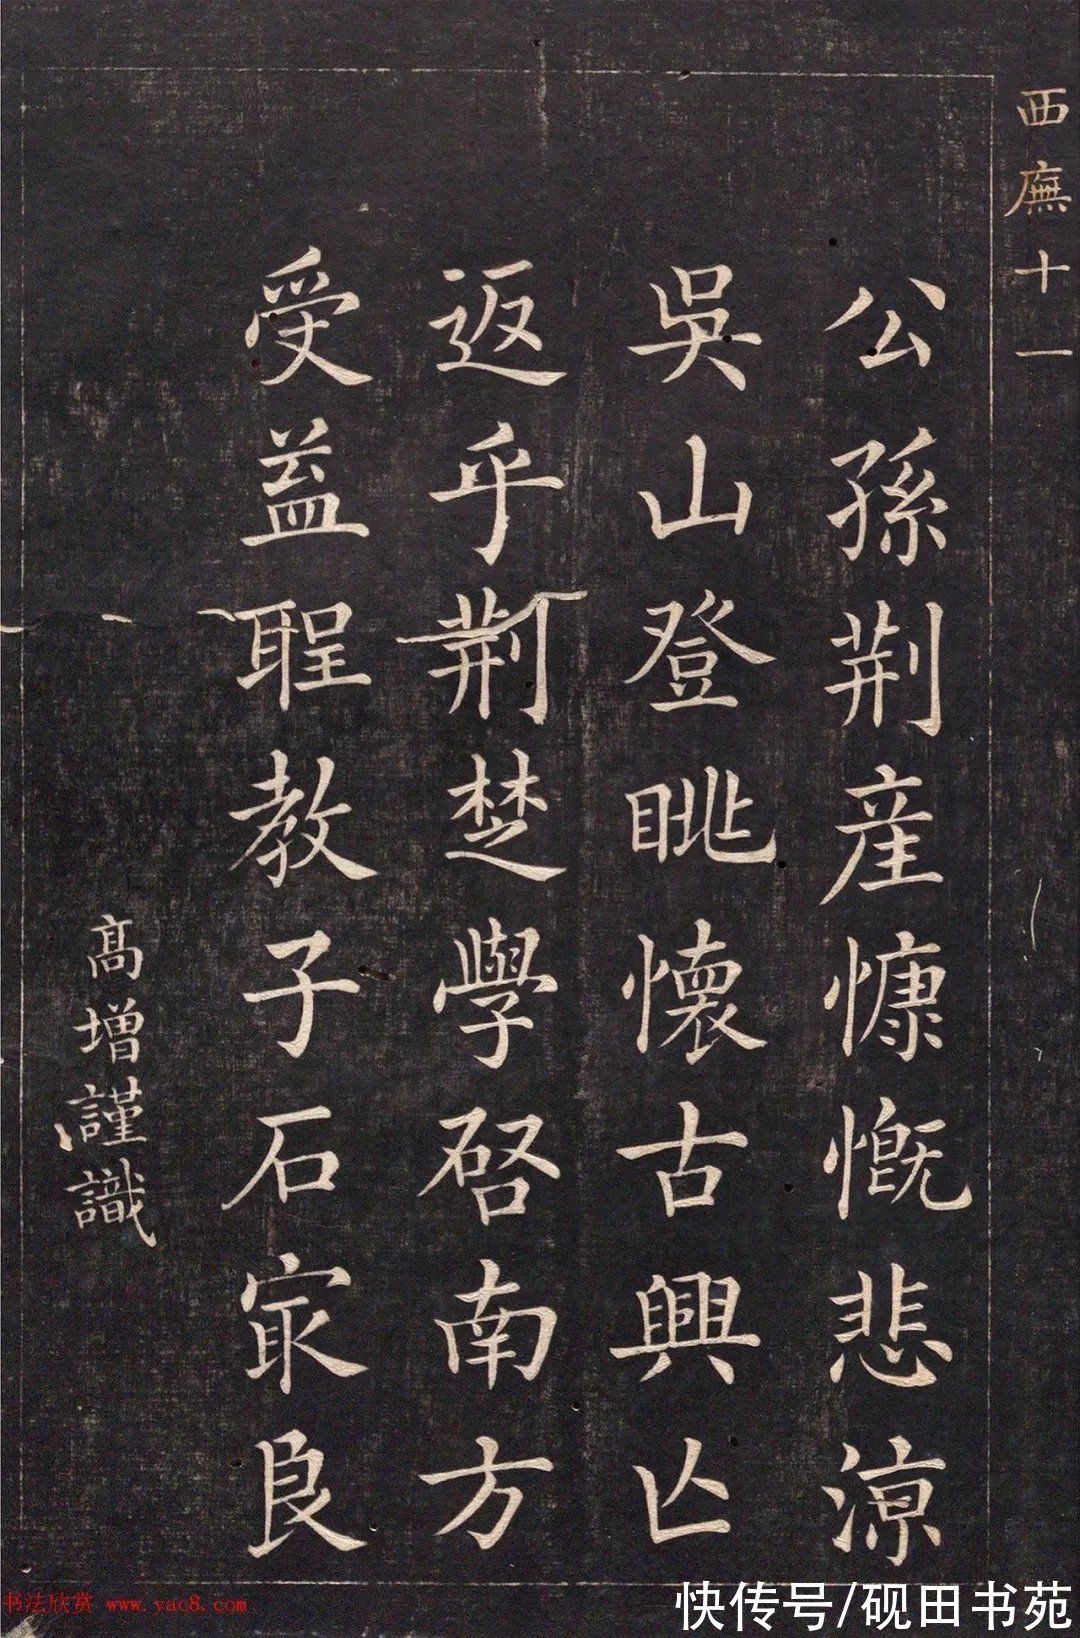 西廡十一
公孫荆産慷慨悲涼
吳山登眺懷古興亾
返乎荆楚學啓南方
受益聖教子石冣良
高增謹識
书法欣赏 www.yac8.com
快传号/砚田书苑